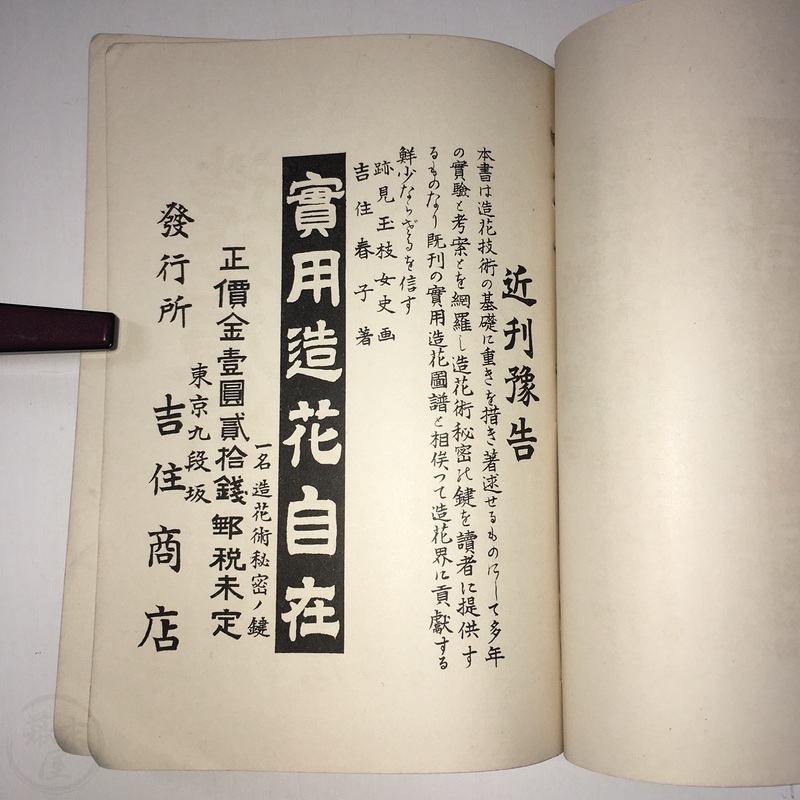 近刊豫告
本書は造花技術の基礎に重きを措き著述せるものにして多年
の實驗と考案とを網羅し造花術秘密の鍵を讀者に提供す
るものなり既刊の實用造花圖譜と相俟つて造花界に貢獻する
鮮少ならざるを信す
跡見玉枝女史画
吉住春子著
實用造花自在
一名造花術秘密ノ鍵
正價金壹圓貳拾錢郵税未定
東京九段坂
發行所 吉住商店